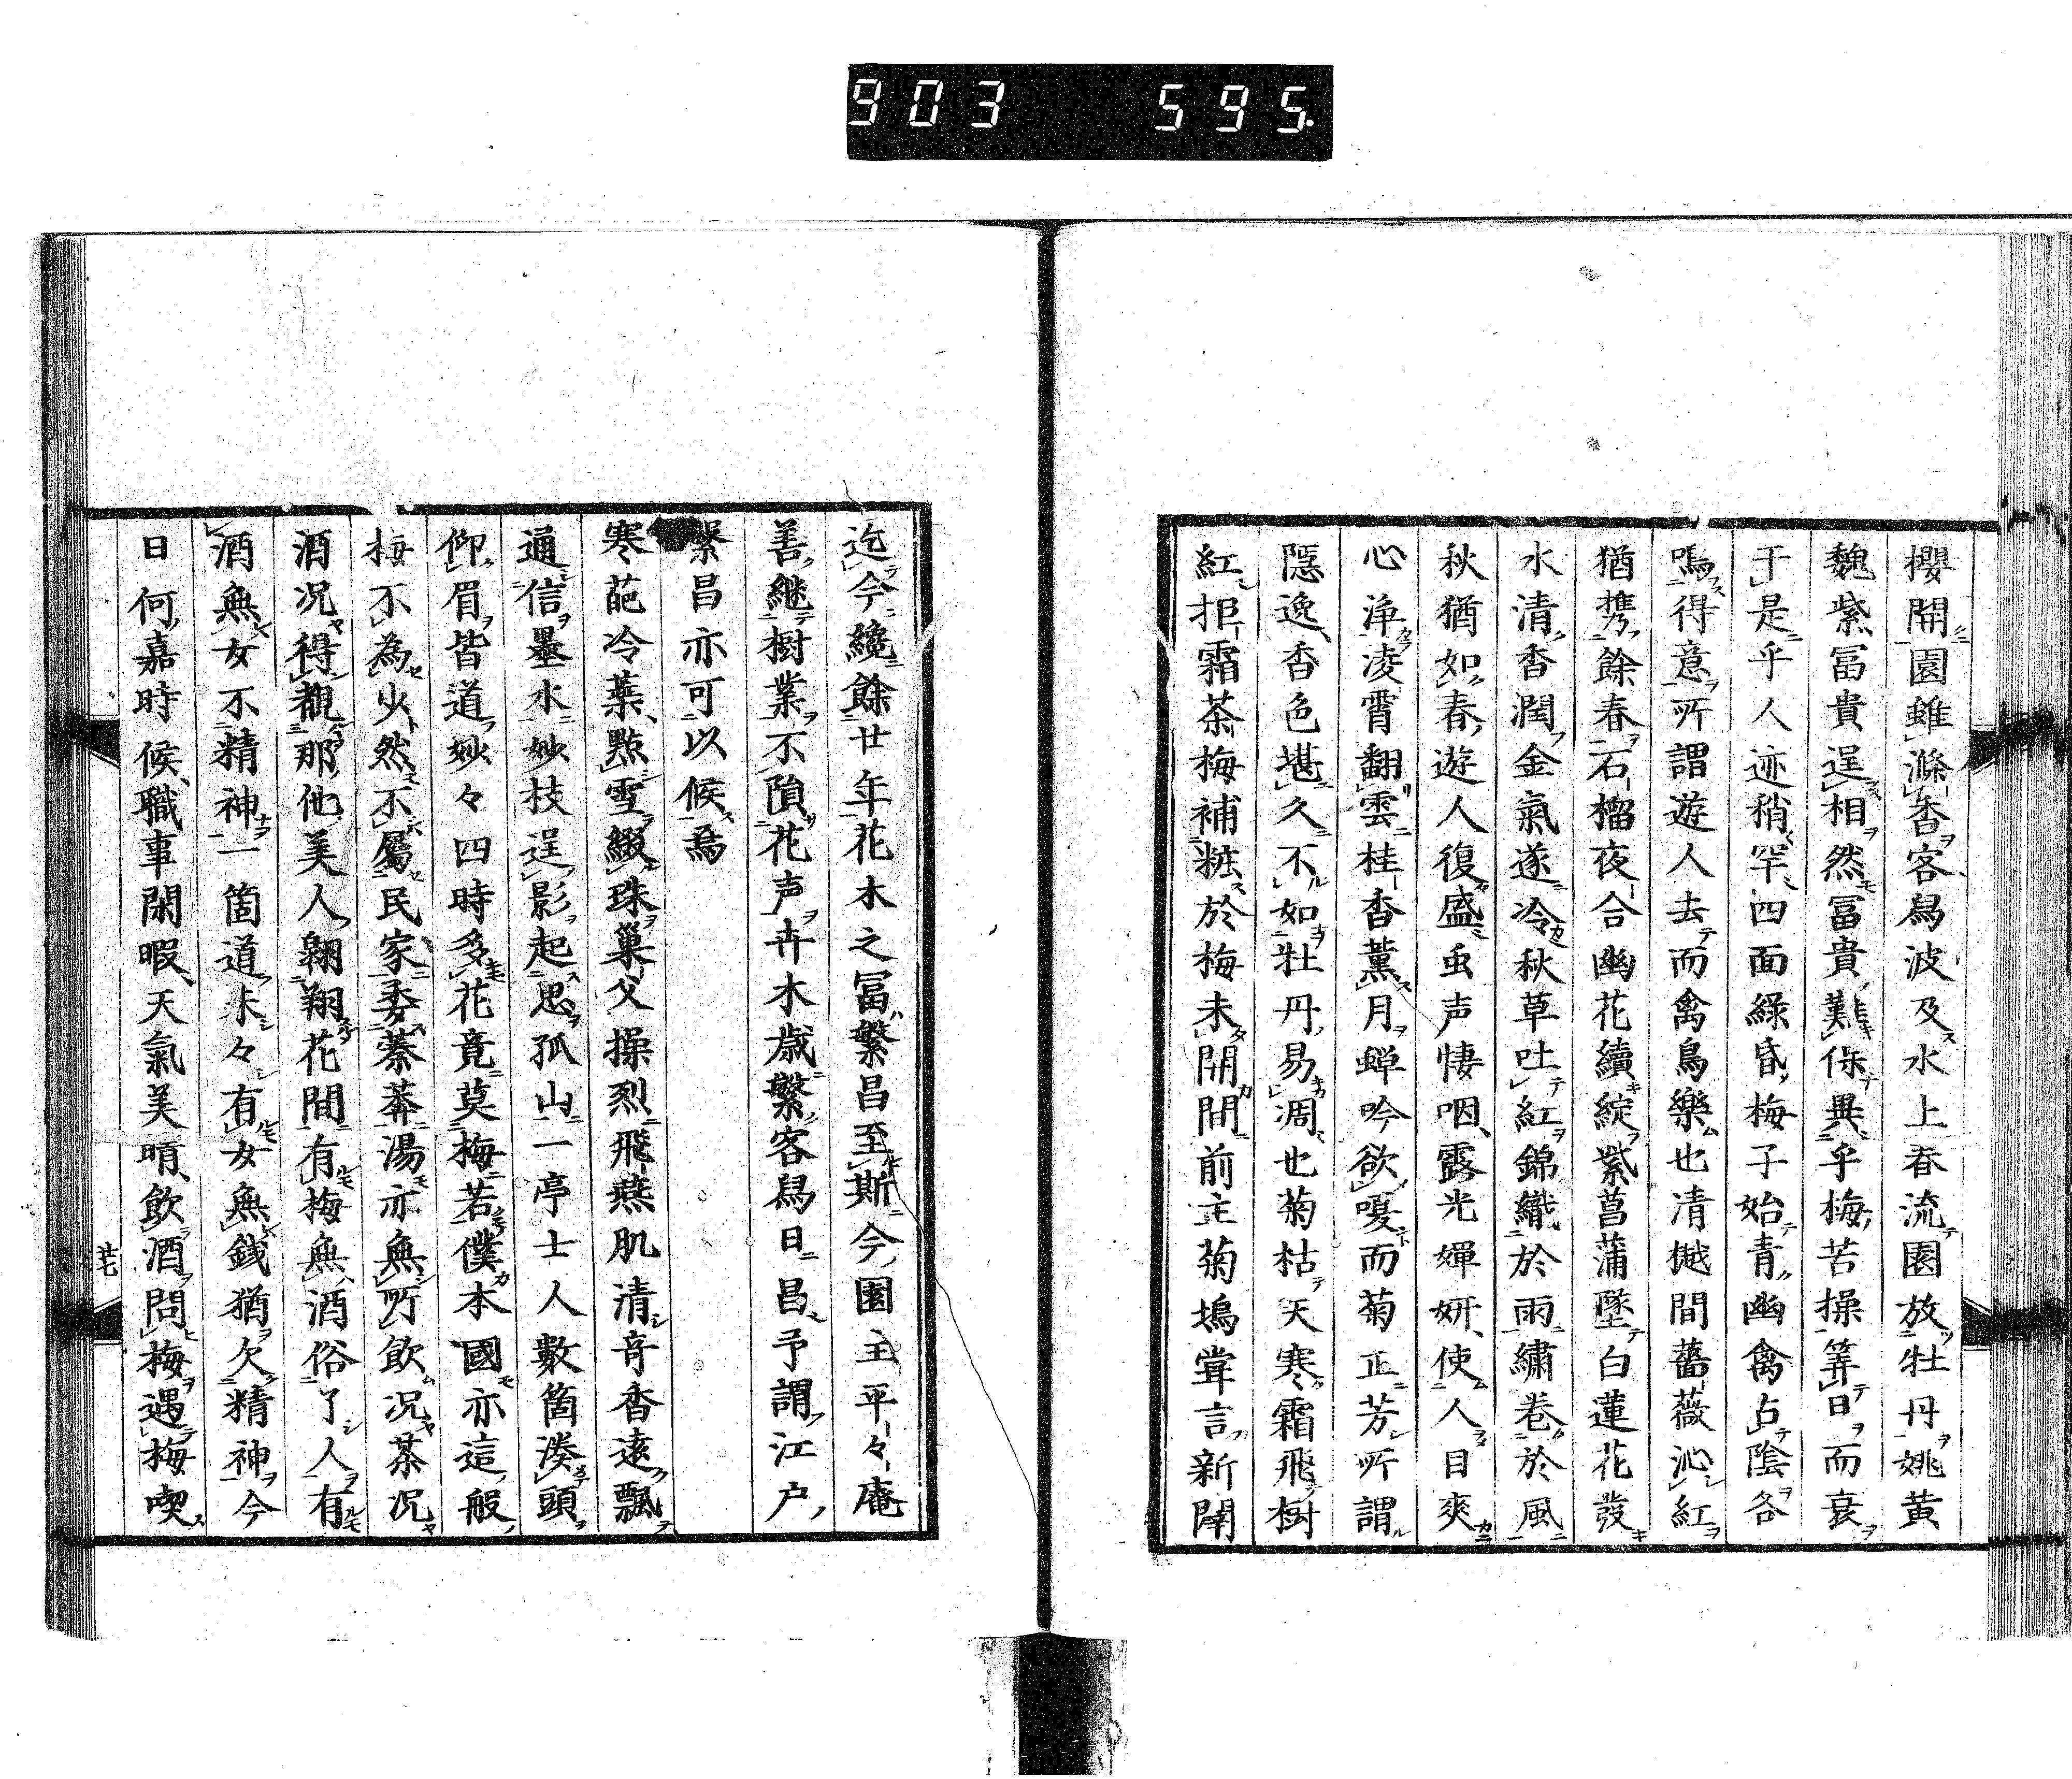 903 595.
櫻開園雖滌香客舄波及水上春流園放牡丹姚黄
魏紫冨貴逞相然冨貴難保異乎梅苦操等日而衰
于是乎人迹稍罕四面綠昏梅子始青幽禽占陰各
鳴得意所謂遊人去而禽鳥樂也清樾間薔薇沁紅
猶携餘春石榴夜合幽花續綻紫菖蒲墜白蓮花發
水清香潤金氣遂冷秋草吐紅錦織於雨繡卷於風
秋猶如春遊人復盛虫声悽咽露光嬋妍使人目爽
心淨凌霄翻雲桂香薫月蝉吟欲嗄而菊正芳所謂
隱逸香色堪久不如牡丹易凋也菊枯天寒霜飛樹
紅拒霜茶梅補粧於梅未開間前主菊塢甞言新闢
迄今纔餘廿年花木之冨繁昌至斯今園主平々庵
善継樹業不隕花声卉木歳繁客舄日昌予謂江户
繁昌亦可以候焉
寒葩冷葉點雪綴珠巢父操烈飛燕肌清奇香遠飄
通信墨水妙技逞影起思孤山一亭士人數箇湊頭
仰眉皆道妙々四時多花竟莫梅若僕本國亦這般
梅不為少然不屬民家委蓁莽湯亦無所飲况茶况
酒况得觀那他美人翱翔花間有梅無酒俗了人有
酒無女不精神一箇道未々有女無銭猶欠精神今
日何嘉時候職事閑暇天氣美晴飲酒問梅遇梅喫
廿七